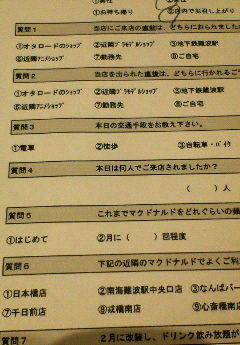 ①お持ち帰り ②店内でお召し上がり
質問1 当店にご来店の直前は、どちらにおられました
①オタロードのショップ ②近隣プラモデルショップ ③地下鉄難波駅
⑥近隣アニメショップ ⑦勤務先 ⑧ご自宅
質問2 当店を出られた直後は、どちらに行かれるご
①オタロードのショップ ②近隣プラモデルショップ ③地下鉄難波駅
⑥近隣アニメショップ ⑦勤務先 ⑧ご自宅
質問3 本日の交通手段をお教え下さい。
①電車 ②徒歩 ③自転車・バイク
質問4 本日は何人でご来店されましたか?
( )人
質問5 これまでマクドナルドをどれぐらいの頻
①はじめて ②月に( )回程度
質問6 下記の近隣のマクドナルドでよくご利
①日本橋店 ②南海難波駅中央口店 ③なんばパー
⑦千日前店 ⑧戎橋南店 ⑨心斎橋南店
質問7 2月に改装し、ドリンク飲み放題が